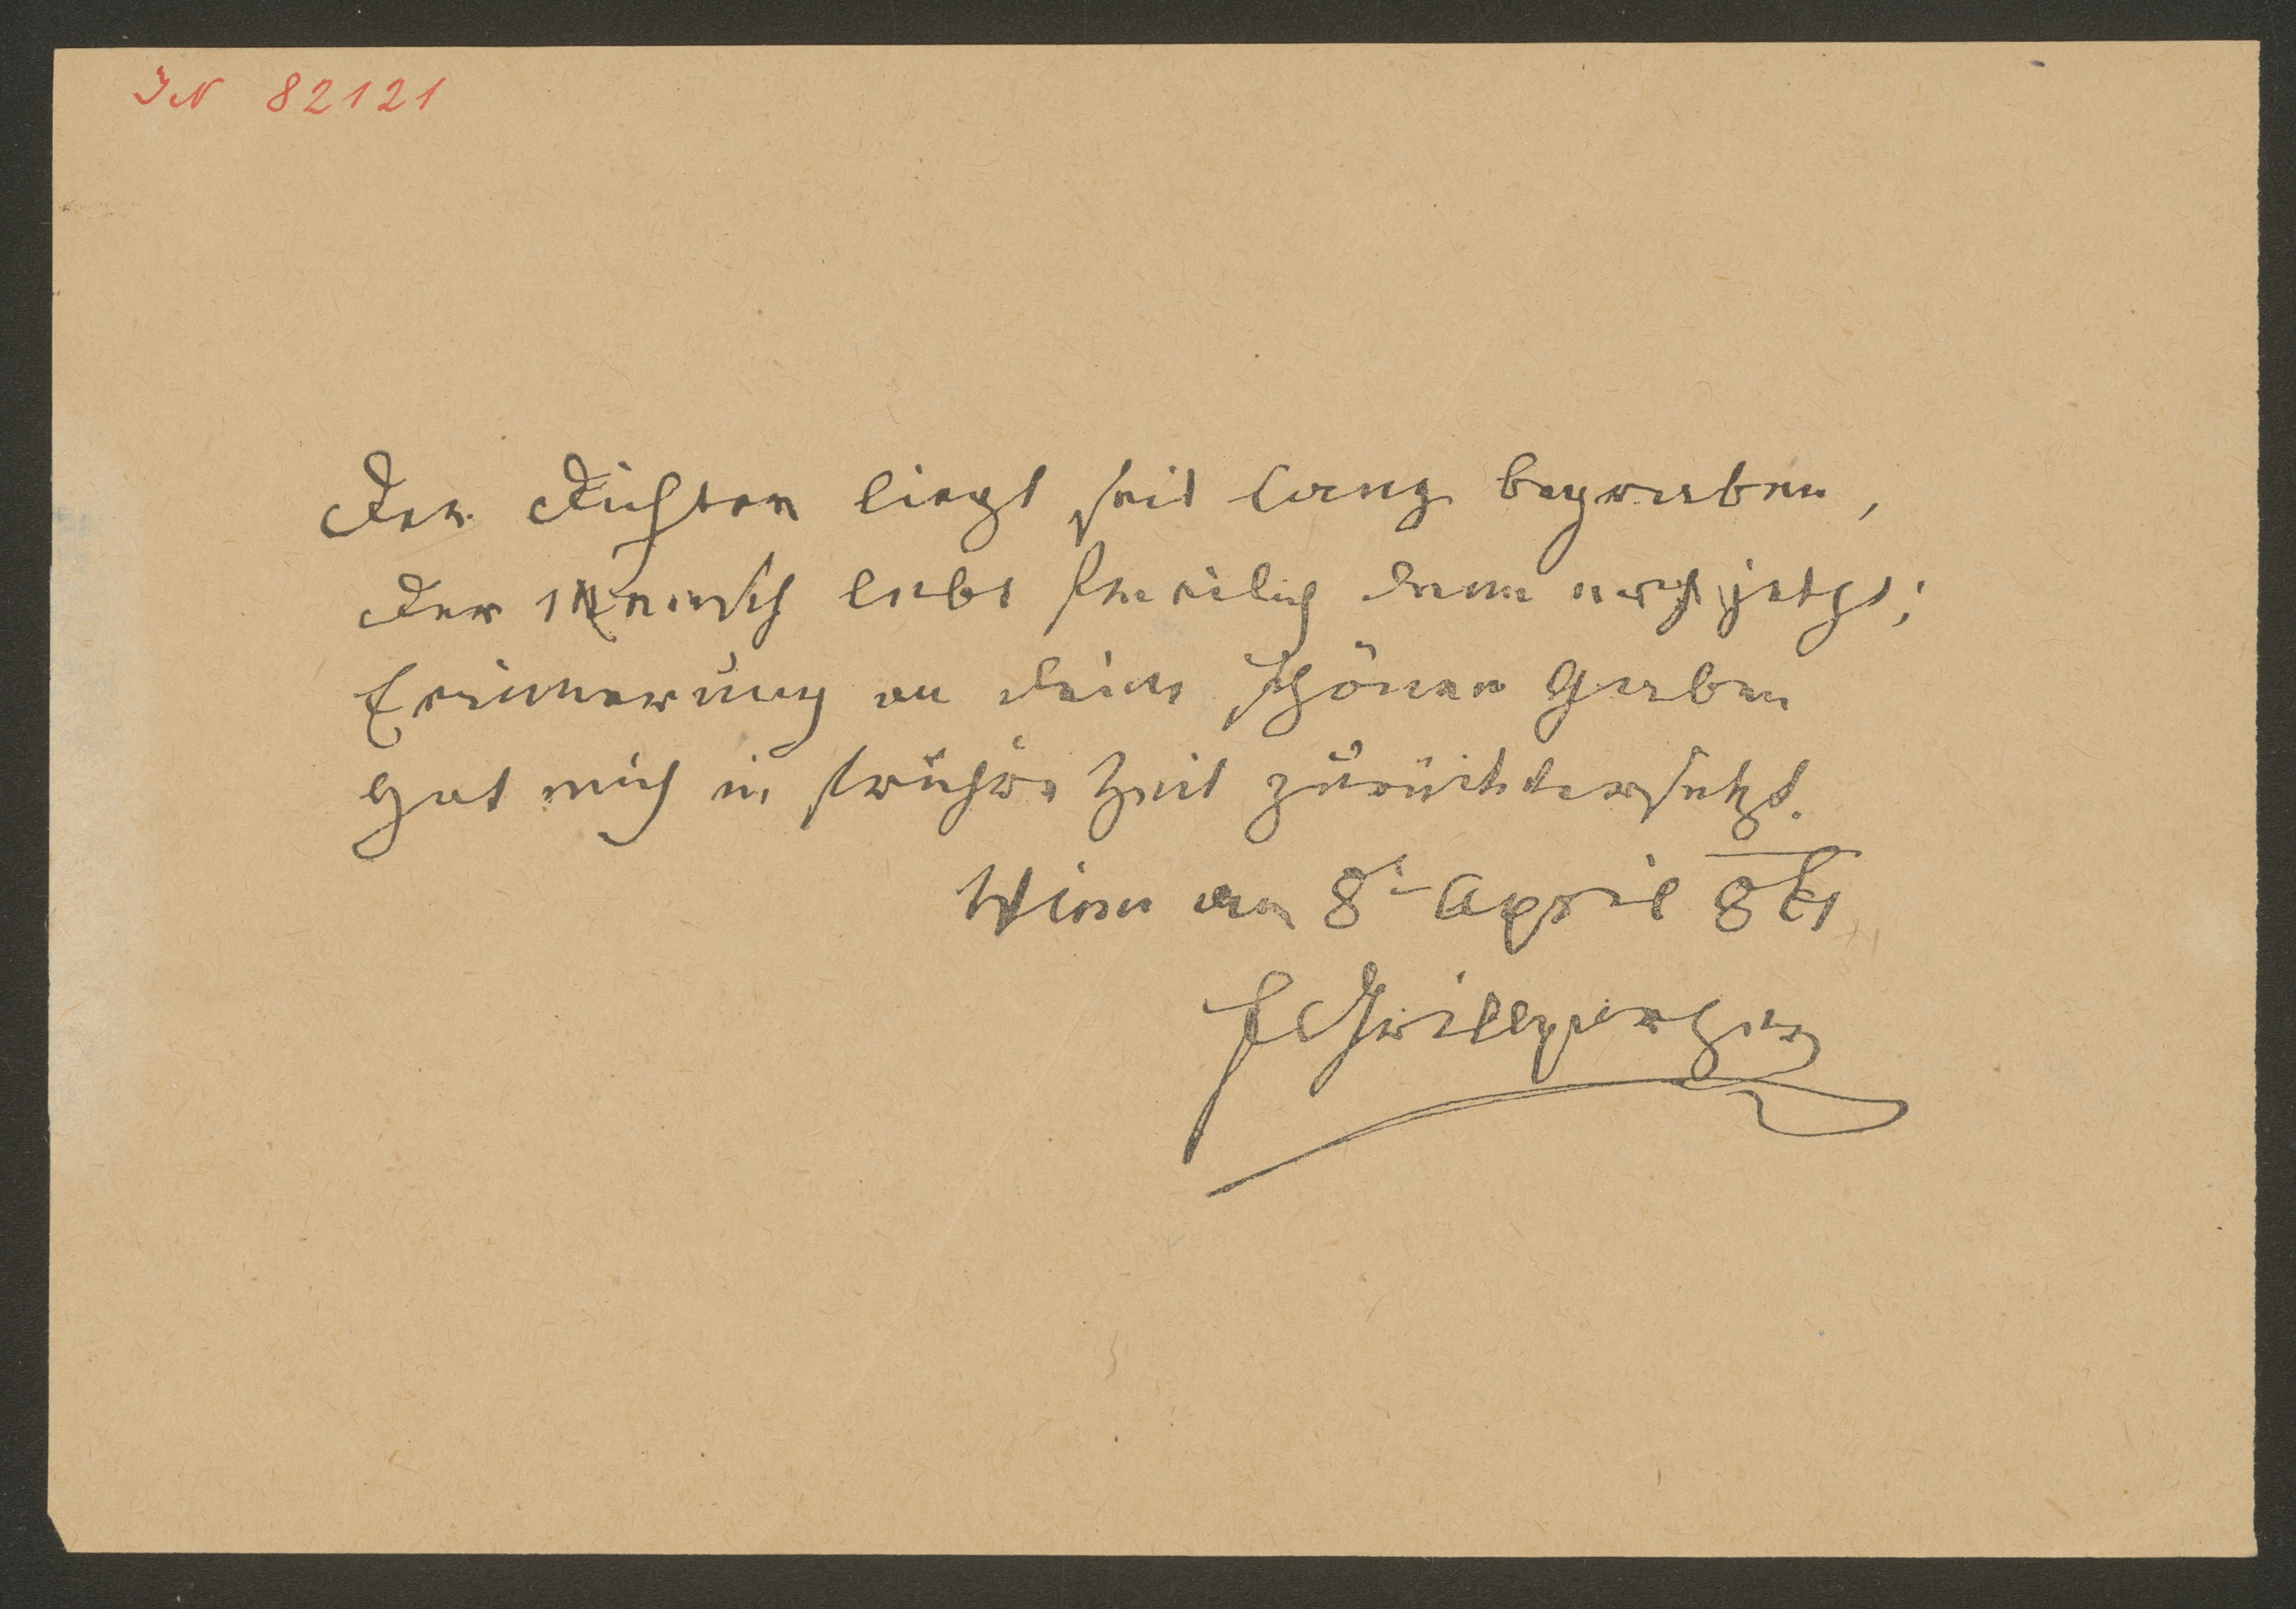 IN 82121
Der Dichter liegt seit lang begraben,
Der Mensch lebt freilich denn noch jetzt;
Erinnerung an deine schönen Gaben
Hat mich in frühre Zeit zurückversetzt.
Wien am 8t April 861
F Grillparzer